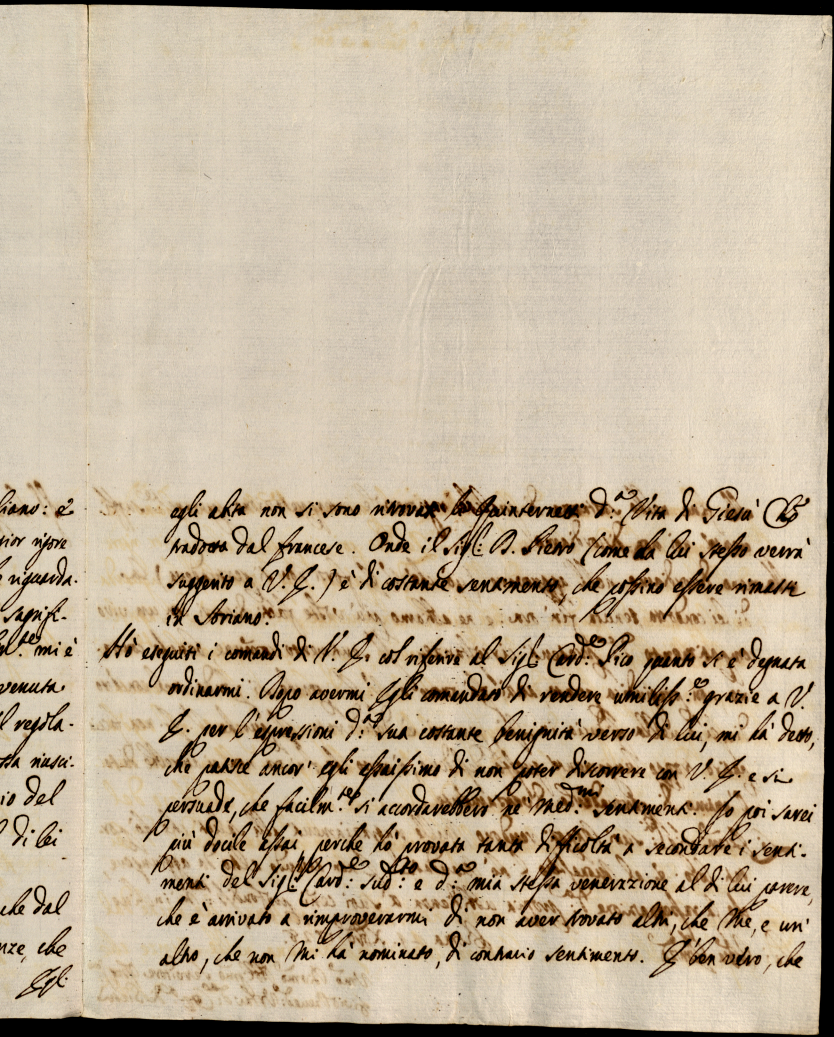 liano: è
rior rigore
e riguarda.
sagrifi-
mi è
venuta
il regola-
sta riusci-
io del
di lei
che dal
nze, che
Egli
egli abita non si sono ritrovate le Quinternette d.ª Vita di Giesù
tradotta dal francese. Onde il Sig.r D. Pietro (come da lui stesso verrà
suggerito a V. E.) è di costante sentimento, che possino essere rimaste
in Ariano.
Hò eseguiti i comandi di V. E. col riferire al Sig.r Card.le Pico quanto si è degnata
ordinarmi. Dopo avermi Egli comandato di rendere umiliss.e grazie a V.
E. per l'espressioni d.ª sua costante benignità verso di lui, mi hà detto,
che patisce ancor' egli assaissimo di non poter discorrere con V. E. e si
persuade, che facilm.te si accordarebbero ne' med.mi sentimenti. Io poi sarei
più docile assai, perche hò provata tanta difficoltà a secondare i senti-
menti del Sig.r Card.le sud.to e d.ª mia stessa venerazione al di lui parere,
che è arrivato a rimproverarmi di non aver trovato altri, che Me, e un'
altro, che non Mi hà nominato, di contrario sentimento. E' ben vero, che